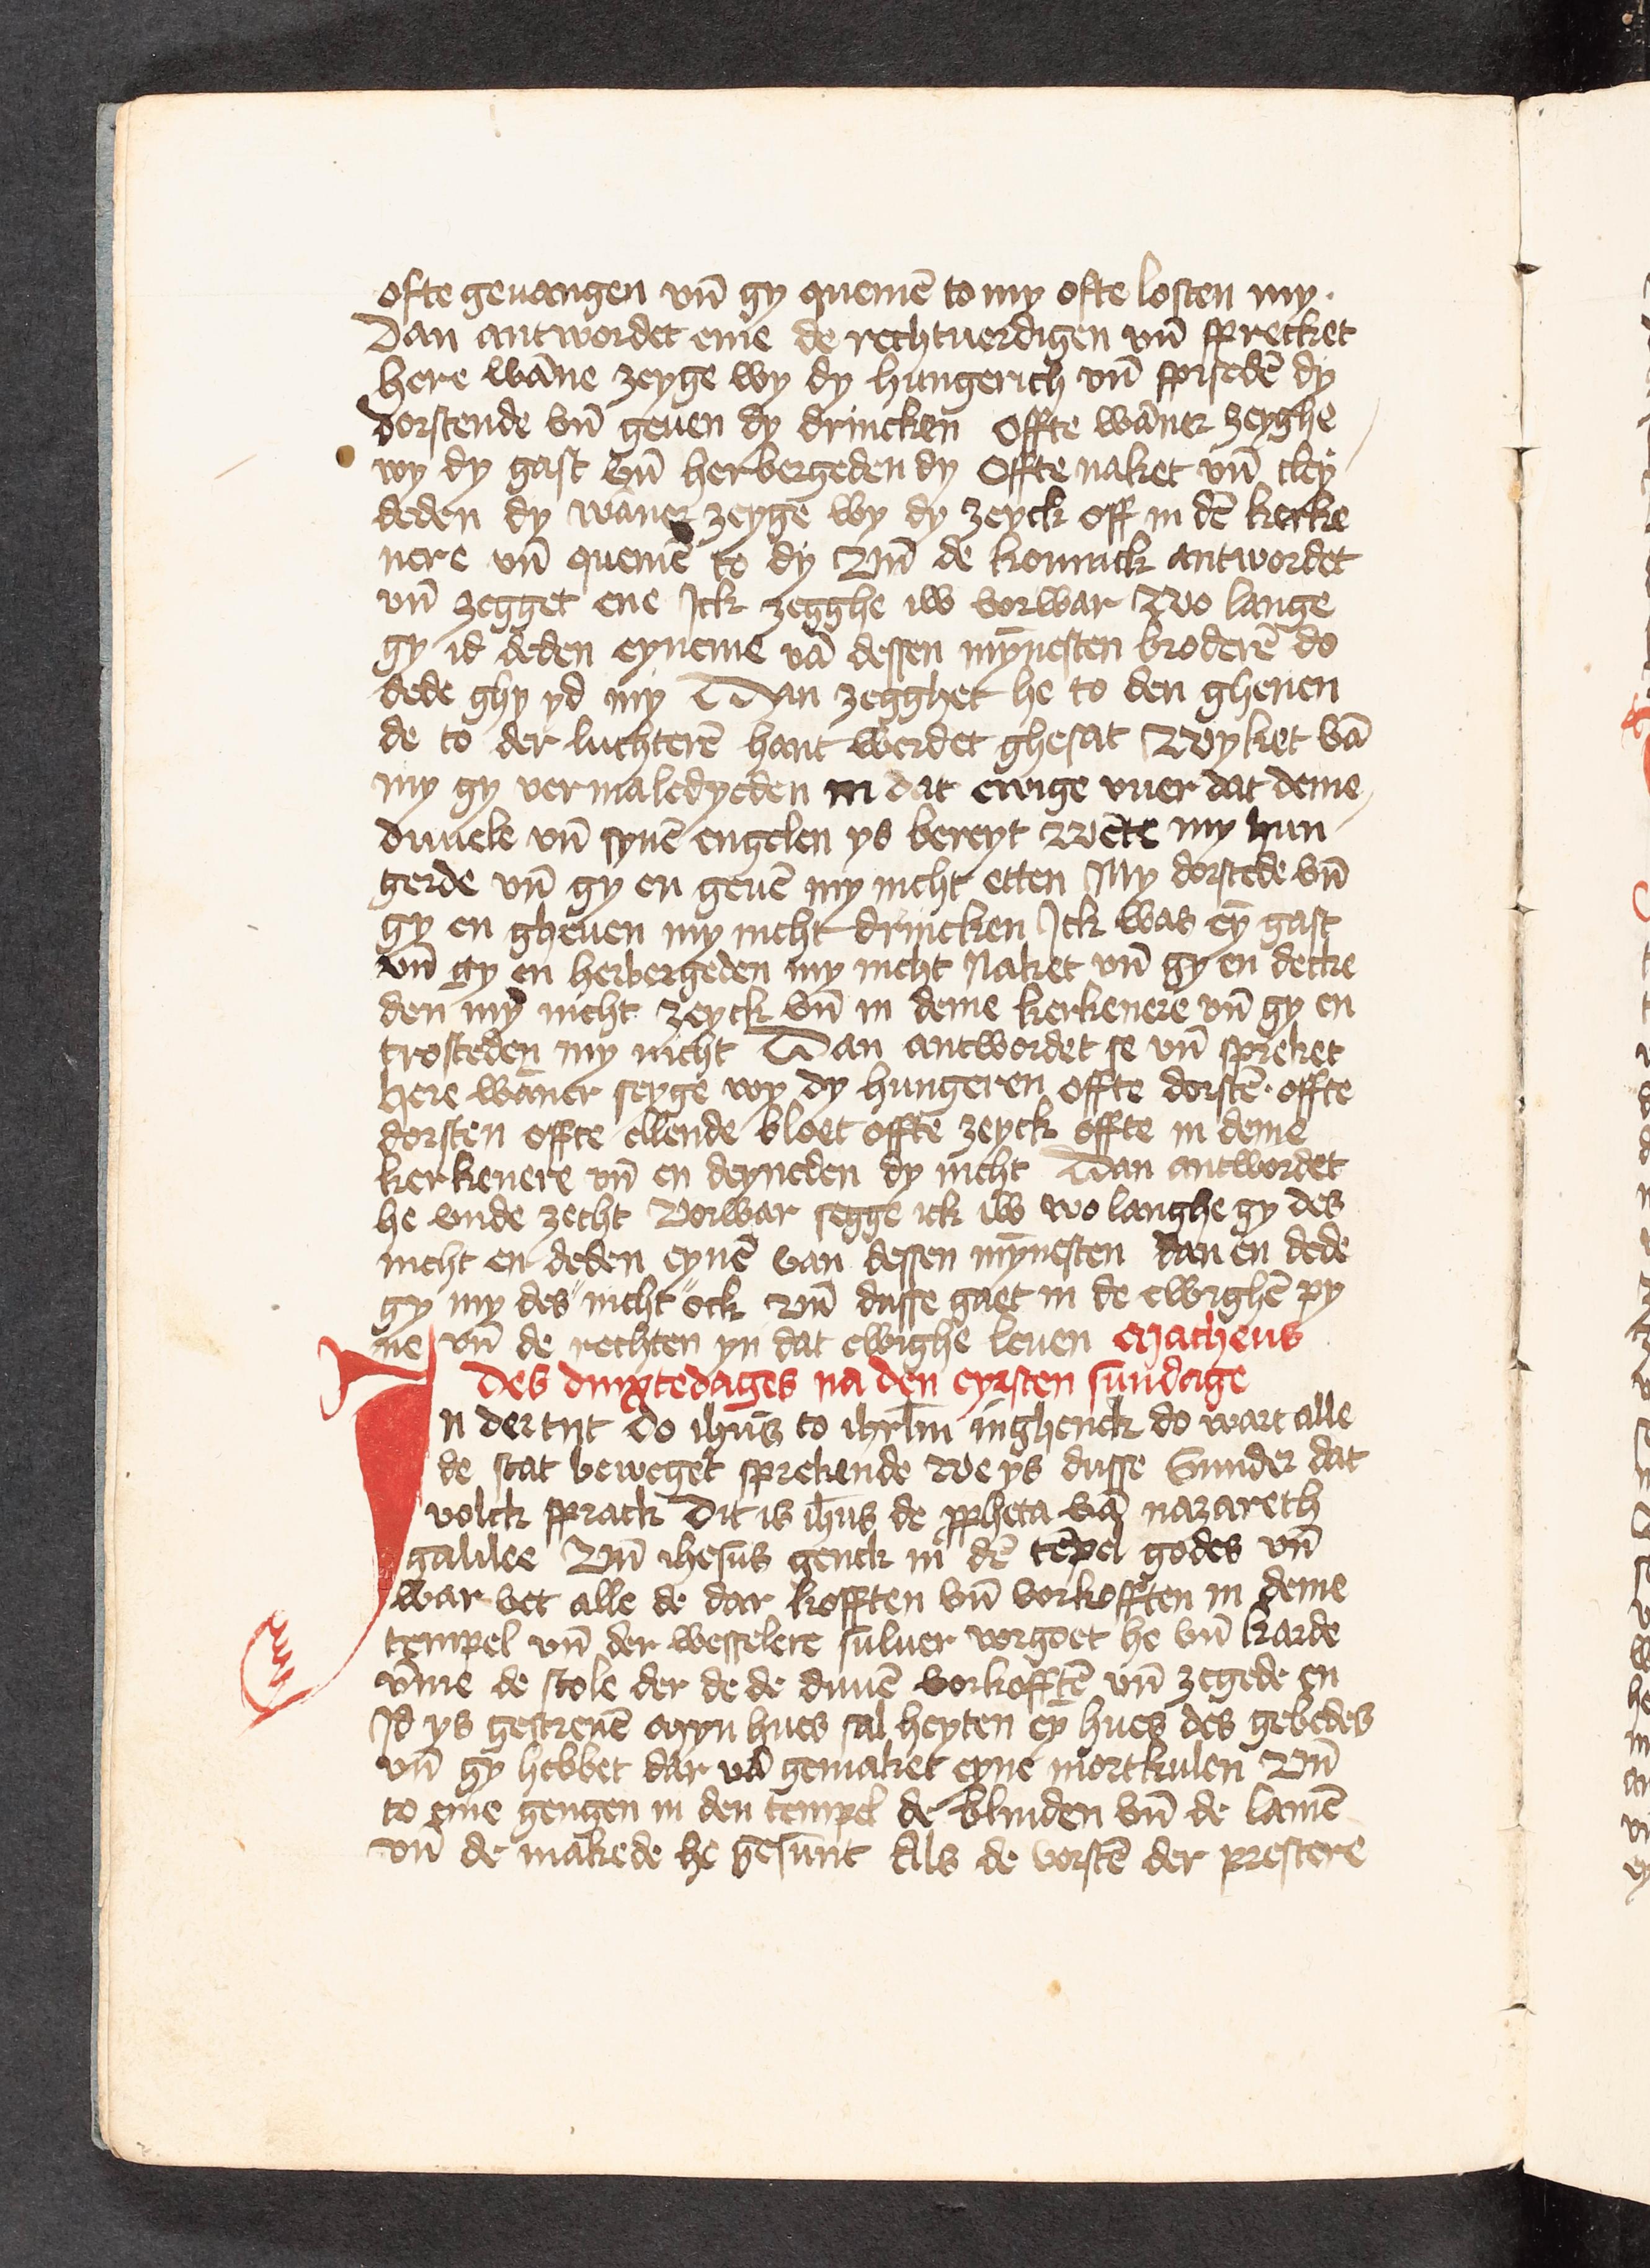 ofte geuangen vn̄ gy quemē to my ofte losten my·
Dan antwordet eme de rechtuerdigen vn̄ sprecket
here wān̄e zeyge wy dy hungerich vn̄ spisedē dy
dorstende vn̄ geuen dy drincken Offte wāner zeyghe
wy dy gast vn̄ herbergeden dy Offte naket vn̄ cley
deden dy wāner zeyge wy dy zeyck off in dē kerke
nere vn̄ quemē to dy Vn̄ de konnick antwordet
vn̄ zegget ene Jck zegghe iw vorwar Wo lange
gy id deden eyneme vā dessen mȳnesten broderē do
dede ghy yd my Dan zegghet he to den ghenen
de to der luchterē hant werdet ghesat Wyket vā
my gy vermaledyeden in dat ewige vuer dat deme
duuele vn̄ synē engelen ys bereyt Wēte my hun
gerde vn̄ gy en geuē my nicht etten My dorstede vn̄
gy en gheuen my nicht drincken Jck was eȳ gast
vn̄ gy en herbergeden my nicht Naket vn̄ gy en decke
den my nicht zeyck vn̄ in deme kerkenere vn̄ gy en
trosteden my nicht Dan antwordet se vn̄ spreket
here wāner seyge wy dy hungeren offte dorstē· offte
dorsten offte ellende bloet offte zeyck offte in deme
kerkenere vn̄ en deyneden dy nicht Dan antwordet
he vnde zecht Vorwar segge ick iw wo langhe gy des
nicht en deden eynē van dessen mȳnesten dan en dede
gy my des nicht ock Vn̄ dusse gaet in de ewighē py
ne vn̄ de rechten yn dat ewighe leuen Matheus
Des dinxtedages na den eyrsten sundage
Jn der tyt do ihūs to ihrl̄m inghenck do wart alle
de stat beweget sprekende We ys dusse Sunder dat
volck sprack Dit is ih̄us de ppheta vā nazareth
galilee Vn̄ ihesus genck in dē tēpel godes vn̄
war vet alle de dar kofften vn̄ vorkofften in deme
tempel vn̄ der wesselere suluer vorgoet he vn̄ karde
v̄me de stole der de de duuē vorkofftē vn̄ zegede en
Jd ys gescreuē Myn hues sal heyten eȳ hues des gebedes
vn̄ gy hebbet dar vā gemaket eyne mortkulen Vn̄
to eme gengen in den tempel de blinden vn̄ de lamē
vn̄ de makede he gesunt Als de vorstē der prestere